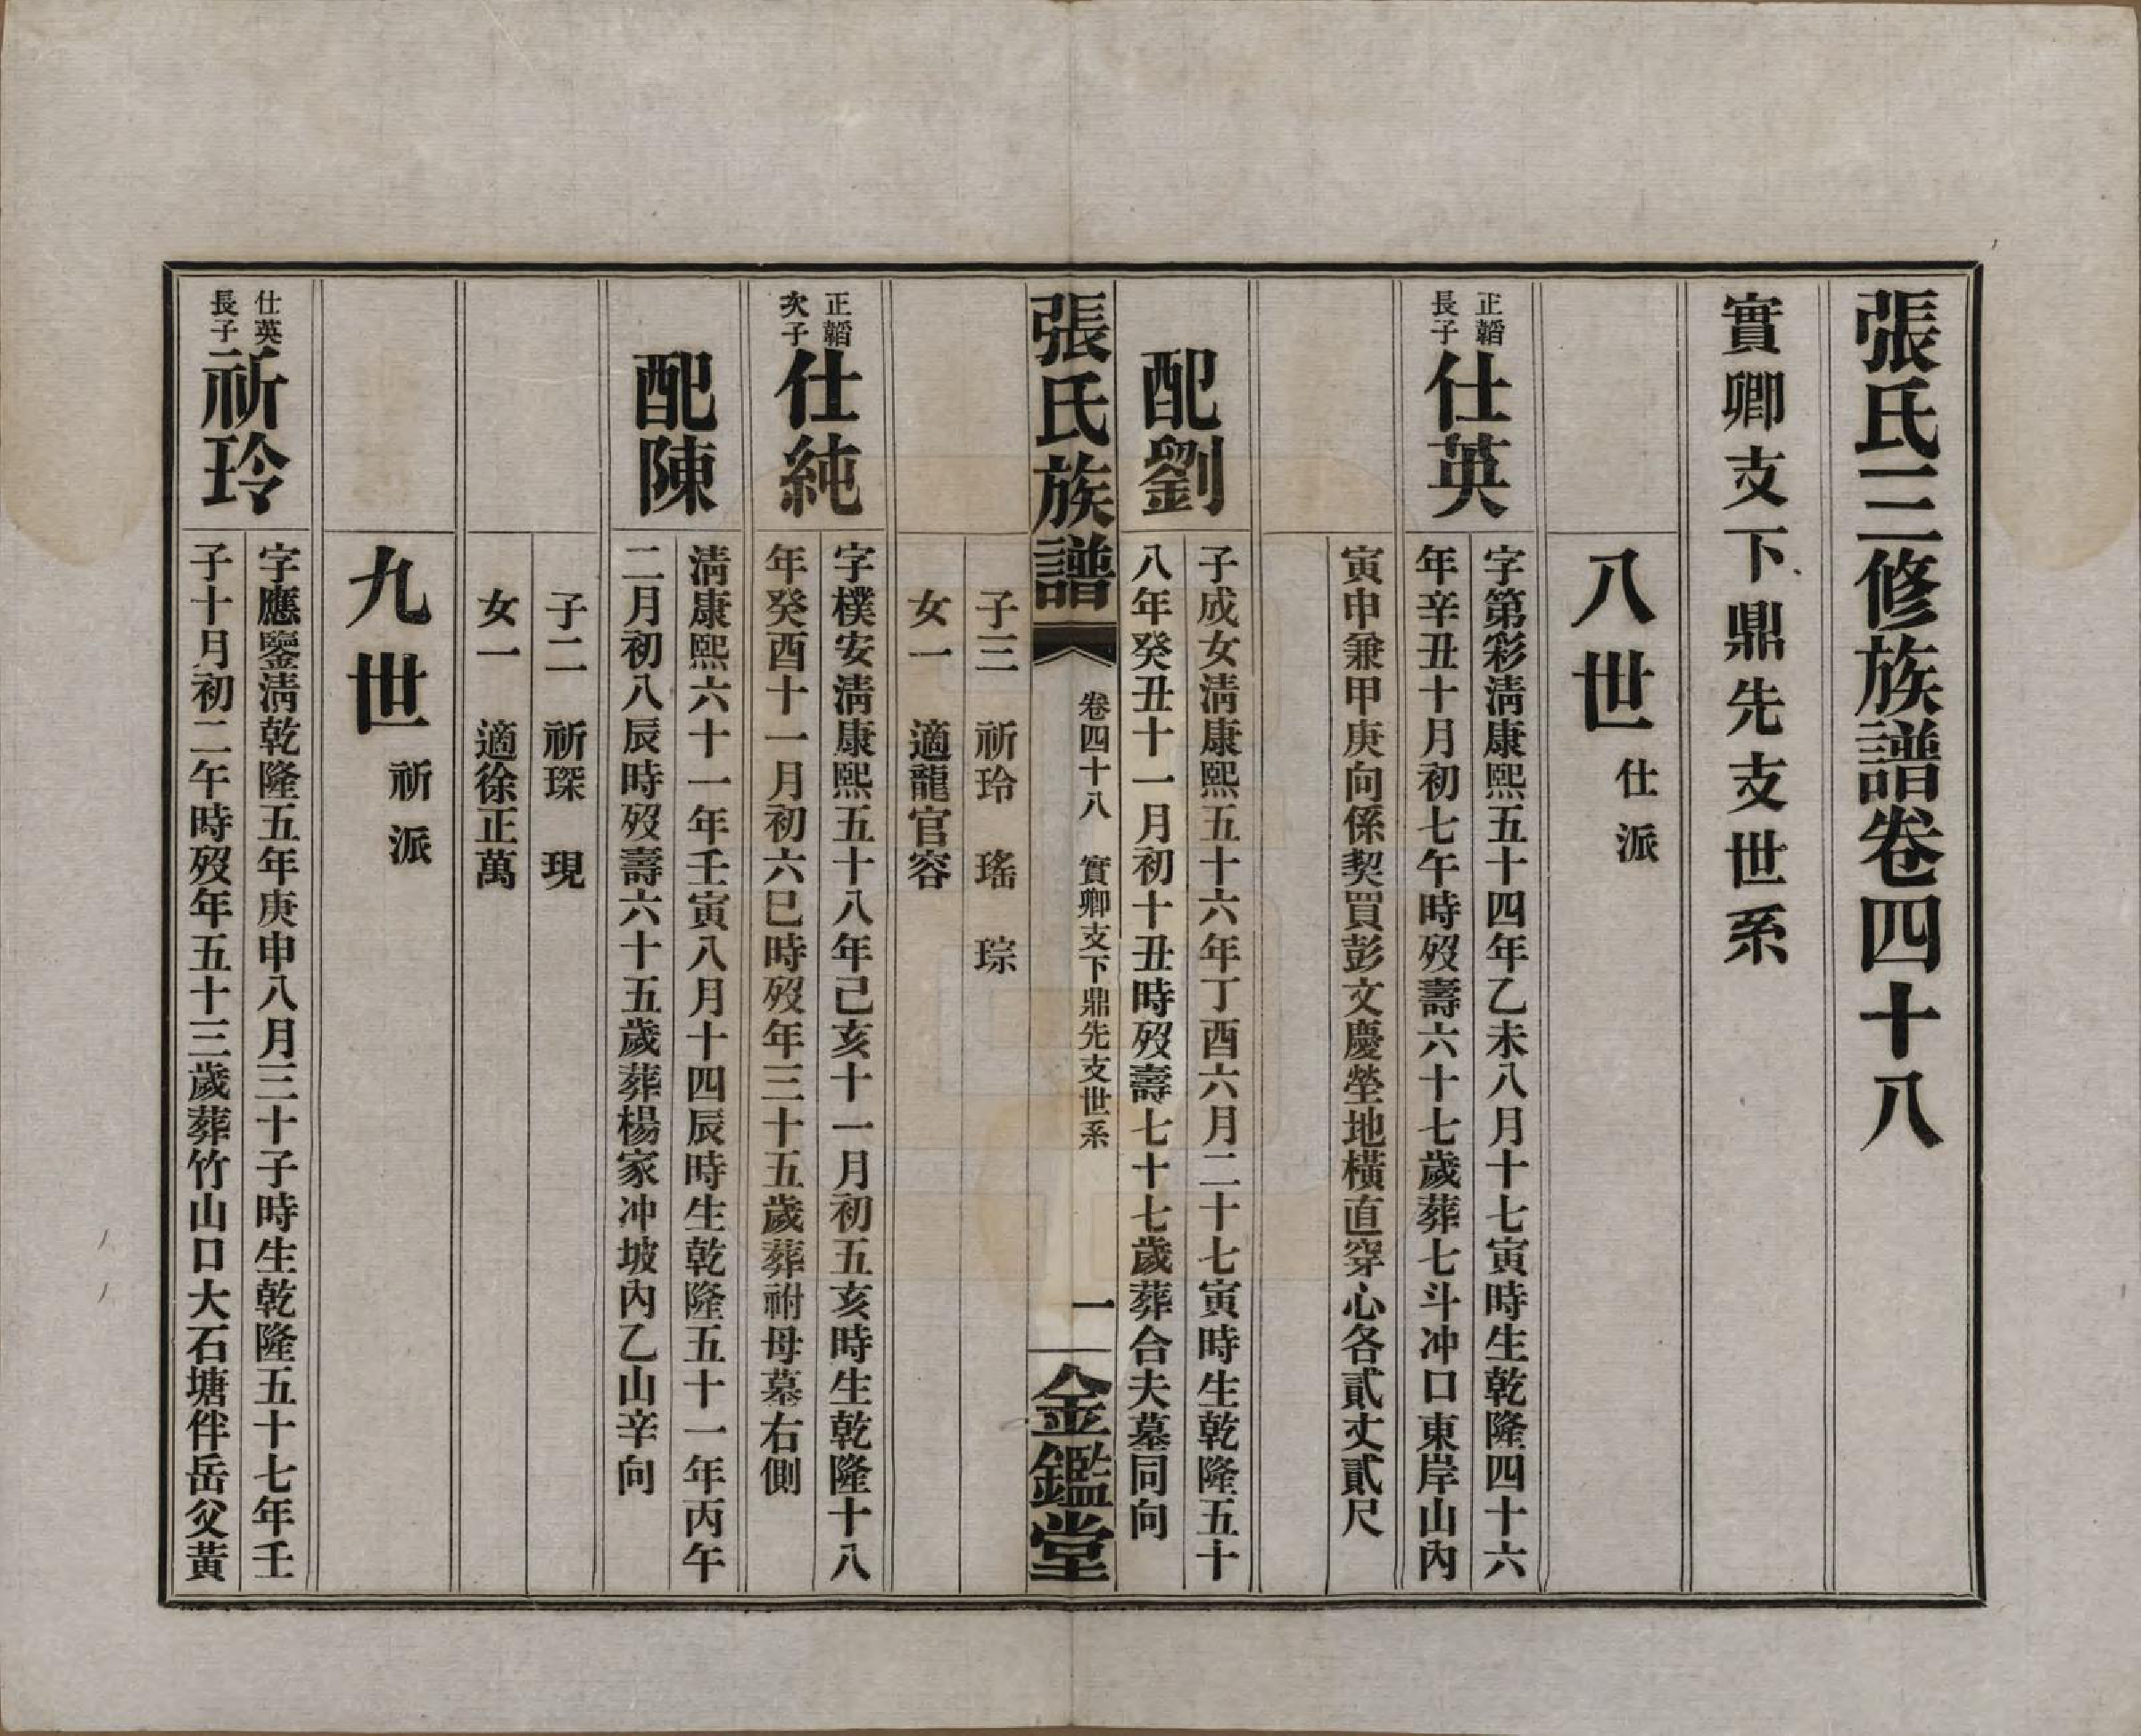 張氏三修族譜卷四十八
實卿支下鼎先支世系
八世 仕派
正韜
長子
仕英
字第彩淸康熙五十四年乙未八月十七寅時生乾隆四十六
年辛丑十月初七午時歿壽六十七歲葬七斗冲口東岸山內
寅申兼甲庚向係契買彭文慶塋地橫直穿心各貳丈貳尺
配劉
子成女淸康熙五十六年丁酉六月二十七寅時生乾隆五十
八年癸丑十一月初十丑時歿壽七十七歲葬合夫墓同向
張氏族譜
卷四十八 實卿支下鼎先支世系
一
金鑑堂
子三 祈玲 瑤 琮
女一 適龍官容
正韜
次子
仕純
字樸安淸康熙五十八年己亥十一月初五亥時生乾隆十八
年癸酉十一月初六巳時歿年三十五歲葬祔母墓右側
配陳
淸康熙六十一年壬寅八月十四辰時生乾隆五十一年丙午
二月初八辰時歿壽六十五歲葬楊家冲坡內乙山辛向
子二 祈琛 現
女一 適徐正萬
九世 祈派
仕英
長子
祈玲
字應鑒淸乾隆五年庚申八月三十子時生乾隆五十七年壬
子十月初二午時歿年五十三歲葬竹山口大石塘伴岳父黃